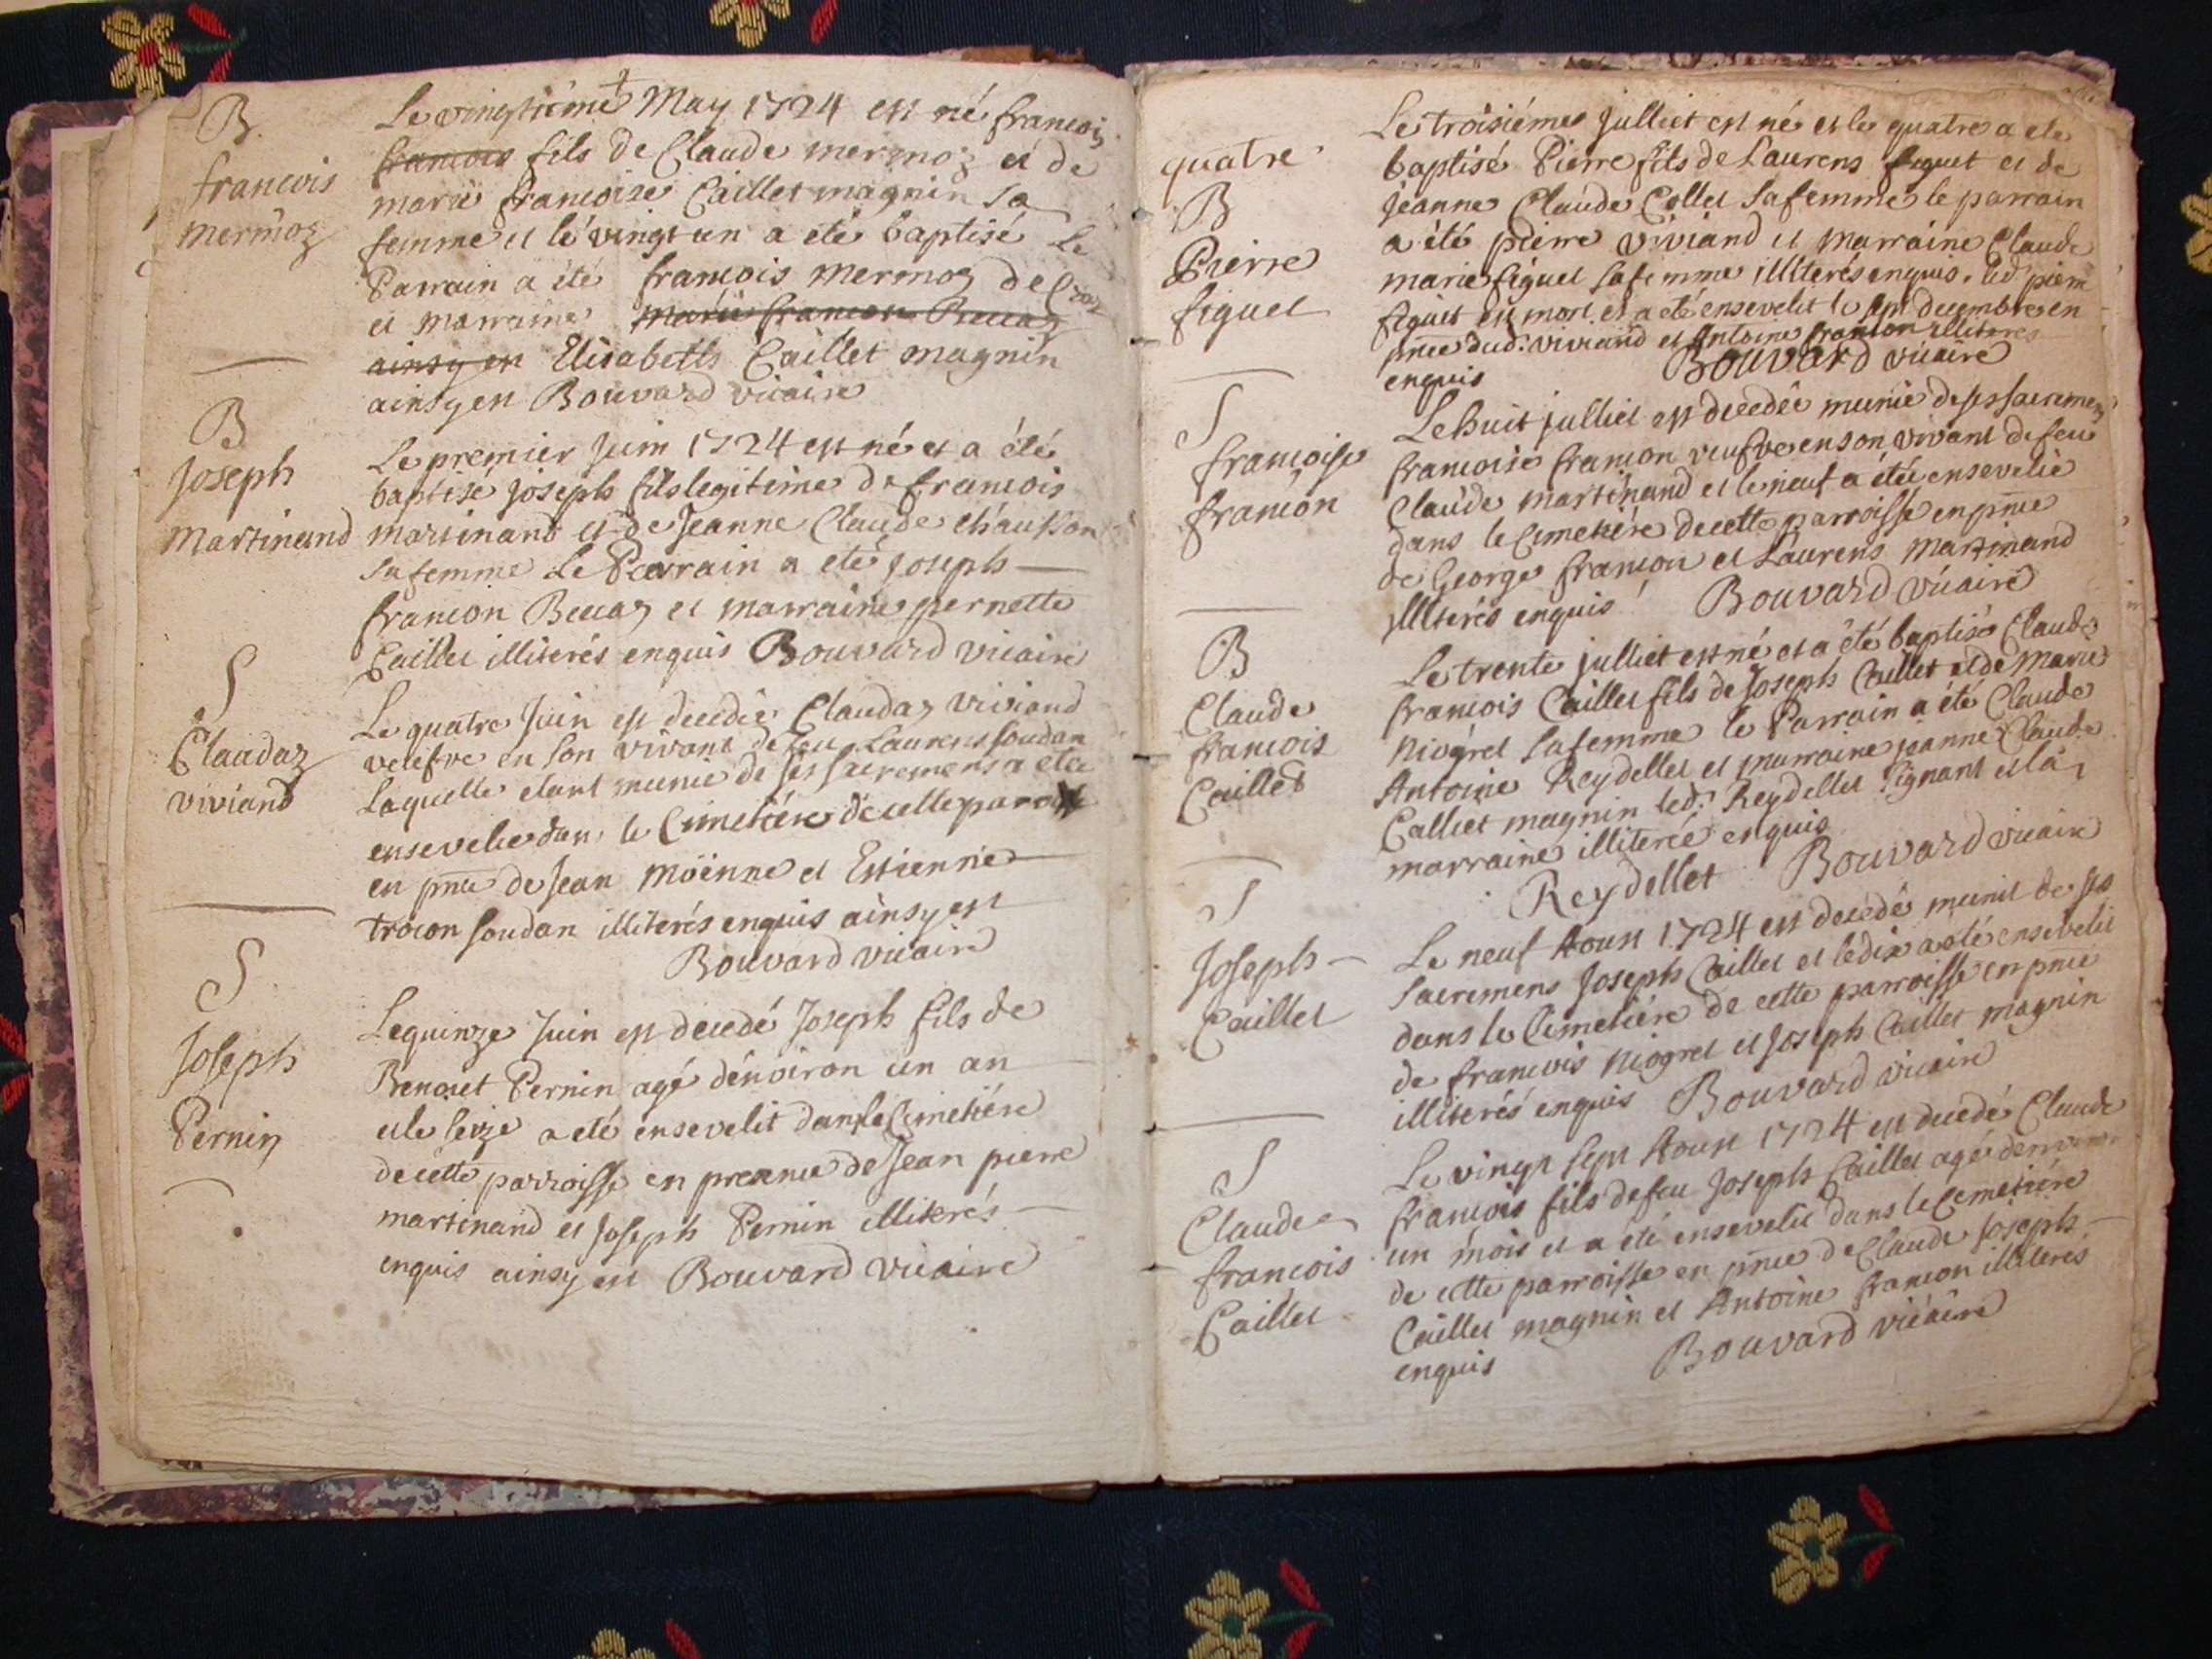 B.
francois
mermoz
Le vingtième May 1724 est né francois
francois fils de Claude mermoz et de
marie francoise Caillet magnin sa
femme et le vingt un a été baptisé Le
Parrain a été francois mermoz de
et marraine marie francoise Beccaz
ainsy en Elisabeth Caillet magnin
ainsy est Bouvard vicaire
B
Joseph
Martinand
Le premier Juin 1724 est né et a été
baptisé Joseph fils legitime de francois
martinand et de Jeanne Claude chausson
sa femme Le Parrain a été Joseph
francon Beccaz et marraine pernette
Caillet illiterés enquis Bouvard vicaire
S
Claudaz
viviand
Le quatre Juin est decedée Claudaz viviand
veufve en son vivant de feu Laurens soudan
Laquelle etant munie de ses sacremens a eté
ensevelie dans le Cimetiére de cette paroisse
en pnce de Jean Moënne et Estienne
trocon soudan illiterés enquis ainsy est
Bouvard vicaire
S
Joseph
Pernin
Le quinze Juin est decedé Joseph fils de
Benoiet Pernin agé d'enoiron un an
et le seize a eté ensevelit dans le Cimetiére
de cette parroisse en presence de Jean pierre
martinand et Joseph Pernin illiterés
enquis ainsy est Bouvard vicaire
quatre
B
Pierre
figuet
Le troisiéme Julliet est né et le quatre a ete
baptisé Pierre fils de Laurens figuet et de
Jeanne Claude Collet sa femme le parrain
a été pierre viviand et marraine Claude
marie figuet sa femme illiterés enquis. led pierre
figuet est mort et a eté ensevelit le sept decembre en
pnce dud. viviand et Antoine francon illiteres
enquis Bouvard vicaire
S
francoise
francon
Le huit julliet est decedée munie de ses sacremens
francoise francon veufve en son vivant de feu
Claude martinand et le neuf a été ensevelie
dans le Cimetiére de cette parroisse en pnce
de George francon et Laurens Martinand
illiterés enquis Bouvard vicaire
B
Claude
francois
Caillet
Le trente julliet est né et a été baptisé Claude
francois Caillet fils de Joseph Caillet et de Marie
Niogret sa femme le Parrain a été Claude
Antoine Reydellet et marraine jeanne Claude
Calliet magnin led. Reydellet signant et la
marraine illiterée enquis
Reydellet Bouvard vicaire
S
Joseph
Caillet
Le neuf Aoust 1724 est decedé munit de ses
sacremens Joseph Caillet et le dix a eté ensevelit
dans le Cimetiére de cette parroisse en pnce
de francois Niogret et Joseph Caillet magnin
illiterés enquis Bouvard vicaire
S
Claude
francois
Caillet
Le vingt sept Aoust 1724 est decedé Claude
francois fils de feu Joseph Caillet agé d'environ
un mois et a été ensevelit dans le Cemetiére
de cette parroisse en pnce de Claude Joseph
Caillet magnin et Antoine francon illiterés
enquis Bouvard vicaire